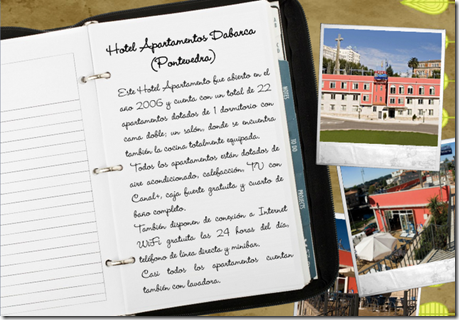 Hotel Apartamentos Dabarca
(Pontevedra)
Este Hotel Apartamento fue abierto en el
año 2006 y cuenta con un total de 22
apartamentos dotados de 1 dormitorio con
cama doble; un salón, donde se encuentra
también la cocina totalmente equipada.
Todos los apartamentos están dotados de
aire acondicionado, calefacción, TV con
Canal+, caja fuerte gratuita y cuarto de
baño completo.
También disponen de conexión a Internet
WiFi gratuita las 24 horas del día,
teléfono de línea directa y minibar.
Casi todos los apartamentos cuentan
también con lavadora.
NOTES
TO DO
PROJECTS